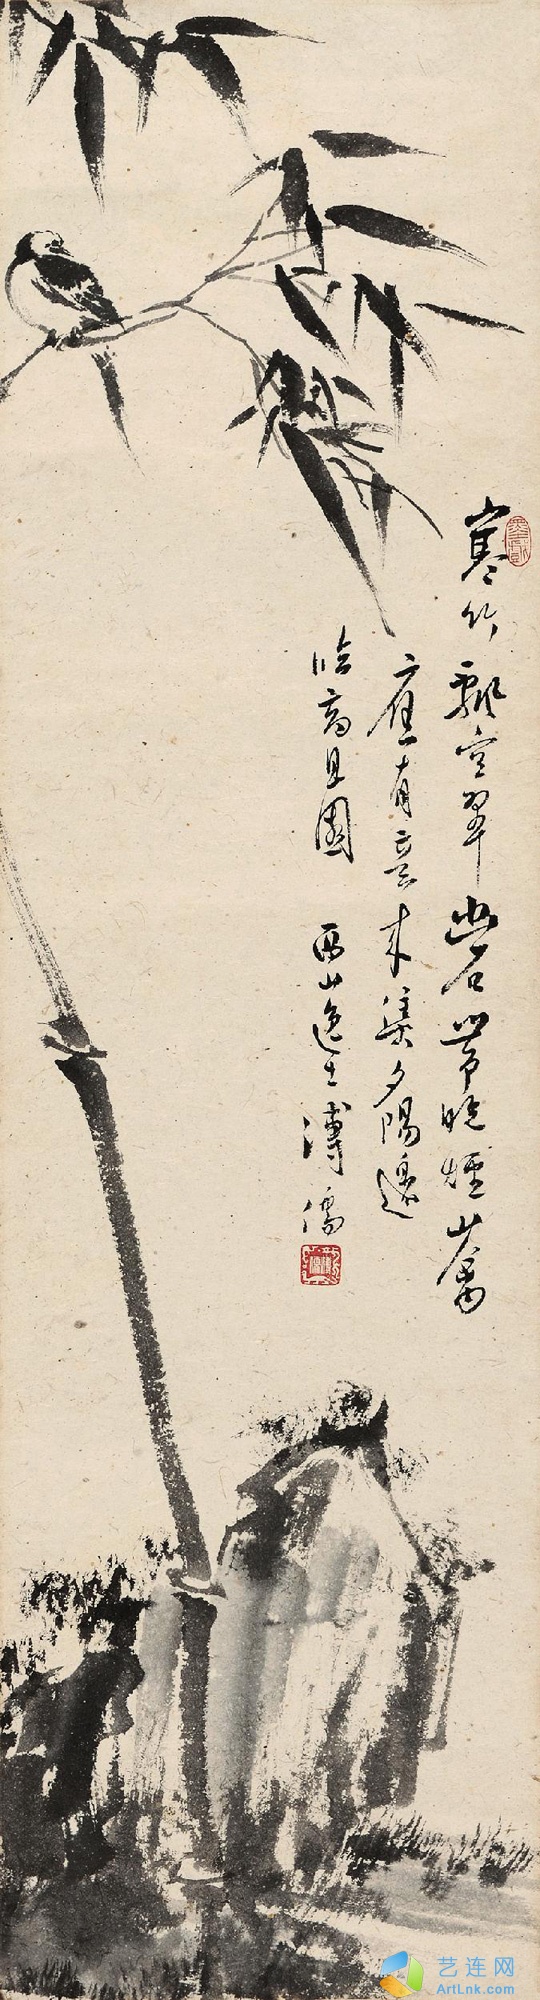 寒竹飄空翠幽石帶晚煙山禽
應有意來集夕陽邊
臨高且園 西山逸士溥儒
艺连网
ArtLnk.com